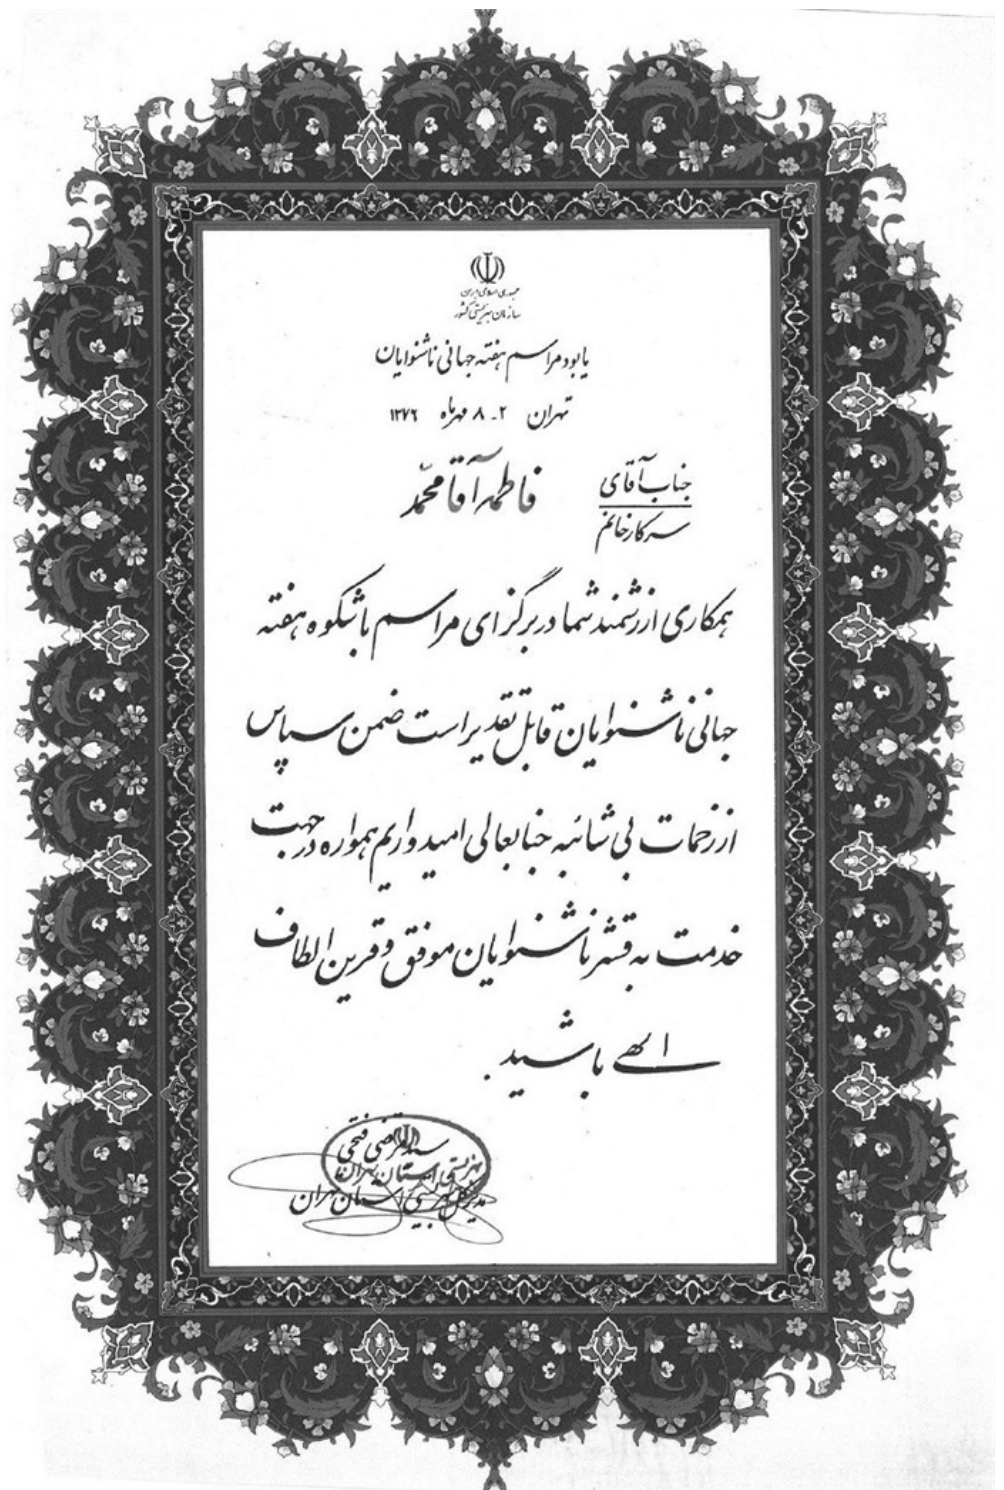 جمهوری اسلامی ایران
سازمان بهزیستی کشور
یادبود مراسم هفته جهانی ناشنوایان
تهران ۲ - ۸ مهرماه ۱۳۷۶
جناب آقای
سرکار خانم
فاطمه آقا محمد
همکاری ارزشمند شما در برگزای مراسم باشکوه هفته
جهانی ناشنوایان قابل تقدیر است ضمن سپاس
از زحمات بی شائبه جنابعالی امیدواریم همواره در جهت
خدمت به قشر ناشنوایان موفق و قرین الطاف
الهی باشید.
سید مرتضی فتحی
مدیرکل بهزیستی استان تهران